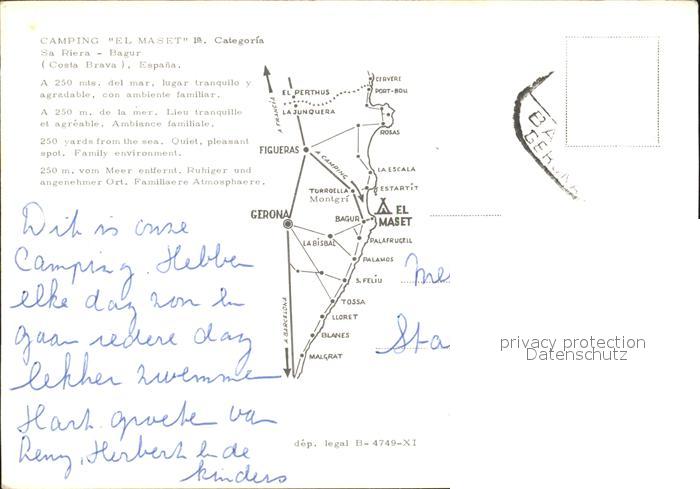 CAMPING "EL MASET" 1ª. Categoría
Sa Riera - Bagur
(Costa Brava), España.
A 250 mts. del mar, lugar tranquilo y
agradable, con ambiente familiar.
A 250 m. de la mer. Lieu tranquille
et agréable. Ambiance familiale.
250 yards from the sea. Quiet, pleasant
spot. Family environment.
250 m. vom Meer entfernt. Ruhiger und
angenehmer Ort. Familiaere Atmosphaere.
A FRANCIA
EL PERTHUS
LA JUNQUERA
CERVERE
PORT-BOU
ROSAS
FIGUERAS
A CAMPING
LA ESCALA
ESTARTIT
TORROELLA
Montgrí
GERONA
BAGUR
EL
MASET
LA BISBAL
PALAFRUGELL
PALAMOS
S. FELIU
TOSSA
LLORET
BLANES
MALGRAT
A BARCELONA
Dit is onze
Camping. Hebben
elke dag zon en
gaan iedere dag
lekker zwemmen
Hart. groeten van
Reny, Herbert en de
kinders
Sta
dép. legal B-4749-XI
privacy protection
Datenschutz